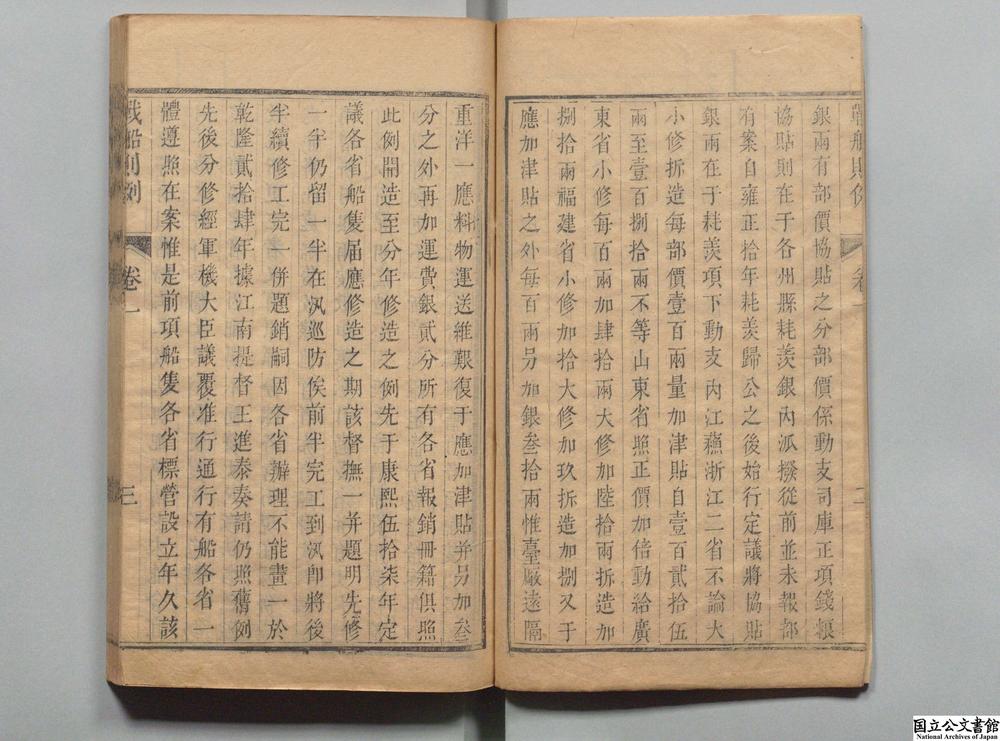 戰船則例
卷一
二
銀兩有部價協貼之分部價係動支司庫正項錢粮
協貼則在于各州縣耗羨銀內派撥從前並未報部
有案自雍正拾年耗羨歸公之後始行定議將協貼
銀兩在于耗羨項下動支內江蘓浙江二省不論大
小修拆造每部價壹百兩量加津貼自壹百貳拾伍
兩至壹百捌拾兩不等山東省照正價加倍動給廣
東省小修每百兩加肆拾兩大修加陸拾兩拆造加
捌拾兩福建省小修加拾大修加玖拆造加捌又于
應加津貼之外每百兩另加銀叁拾兩惟臺厰遠隔
重洋一應料物運送維艱復于應加津貼并另加叁
分之外再加運費銀貳分所有各省報銷冊籍俱照
此例開造至分年修造之例先于康熙伍拾柒年定
議各省船隻届應修造之期該督撫一并題明先修
一半仍留一半在汛巡防俟前半完工到汛即將後
半續修工完一併題銷嗣因各省辦理不能畫一於
乾隆貳拾肆年據江南提督王進泰奏請仍照舊例
先後分修經軍機大臣議覆准行通行有船各省一
體遵照在案惟是前項船隻各省標營設立年久該
戰船則例
卷一
三
国立公文書館
National Archives of Japan